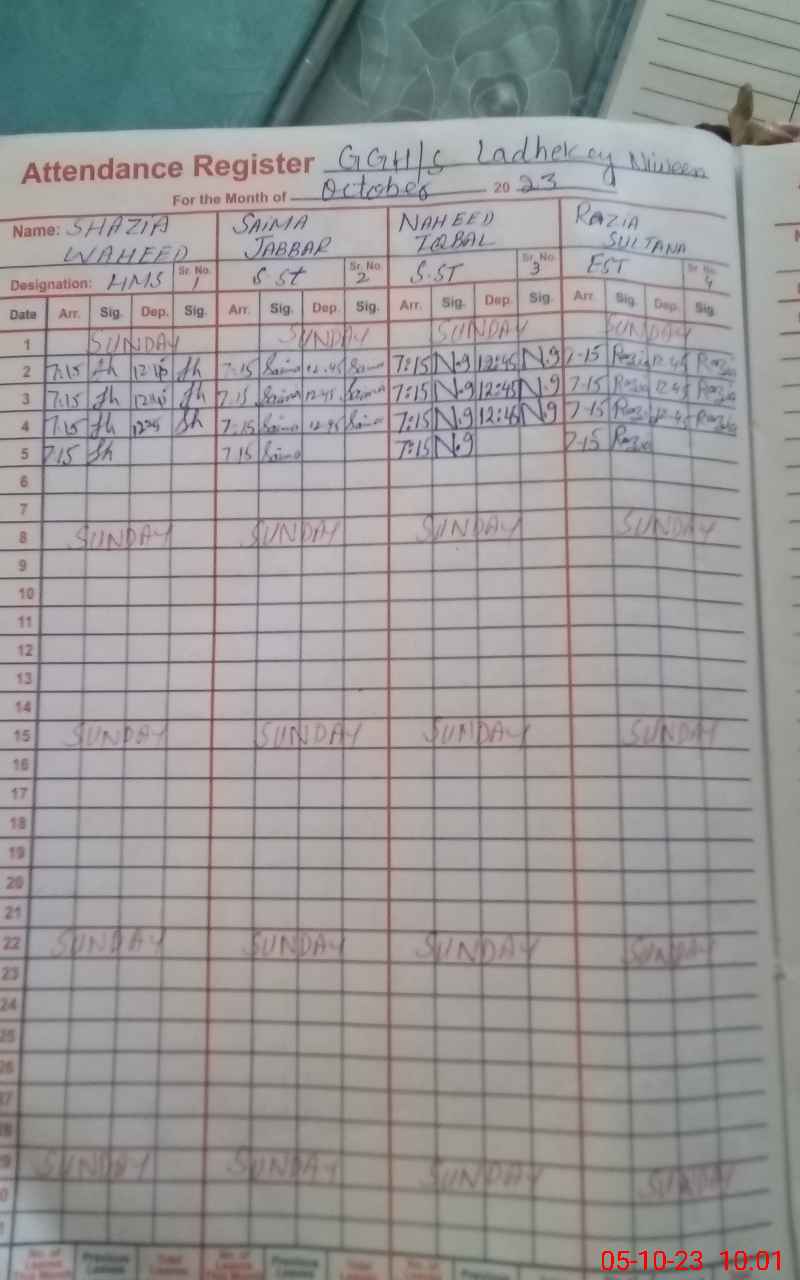 Attendance Register GGH/S Ladhekay Niween
For the Month of October 2023
Name: SHAZIA WAHEED SAIMA JABBAR NAHEED IQBAL RAZIA SULTANA
Designation: HMS Sr. No. 1 S.St Sr. No. 2 S.ST Sr. No. 3 EST Sr. No. 4
Date Arr. Sig. Dep. Sig. Arr. Sig. Dep. Sig. Arr. Sig. Dep. Sig. Arr. Sig. Dep. Sig.
1 SUNDAY SUNDAY SUNDAY SUNDAY
2 7:15 Sh Sh 7:15 Saima 12.45 Saima 7:15 N.9 12:45 N.9 7-15 Razia 12.45 Razia
3 7.15 Sh Sh 7.15 Saima 12.45 Saima 7:15 N.9 12:45 N.9 7-15 Razia 12.45 Razia
4 7.15 Sh Sh 7.15 Saima 12.45 Saima 7:15 N.9 12:45 N.9 7-15 Razia 12.45 Razia
5 7.15 Sh 7.15 Saima 7:15 N.9 7-15 Razia
6
7
8 SUNDAY SUNDAY SUNDAY SUNDAY
9
10
11
12
13
14
15 SUNDAY SUNDAY SUNDAY SUNDAY
16
17
18
19
20
21
22 SUNDAY SUNDAY SUNDAY SUNDAY
23
24
25
26
SUNDAY SUNDAY SUNDAY SUNDAY
05-10-23 10:01